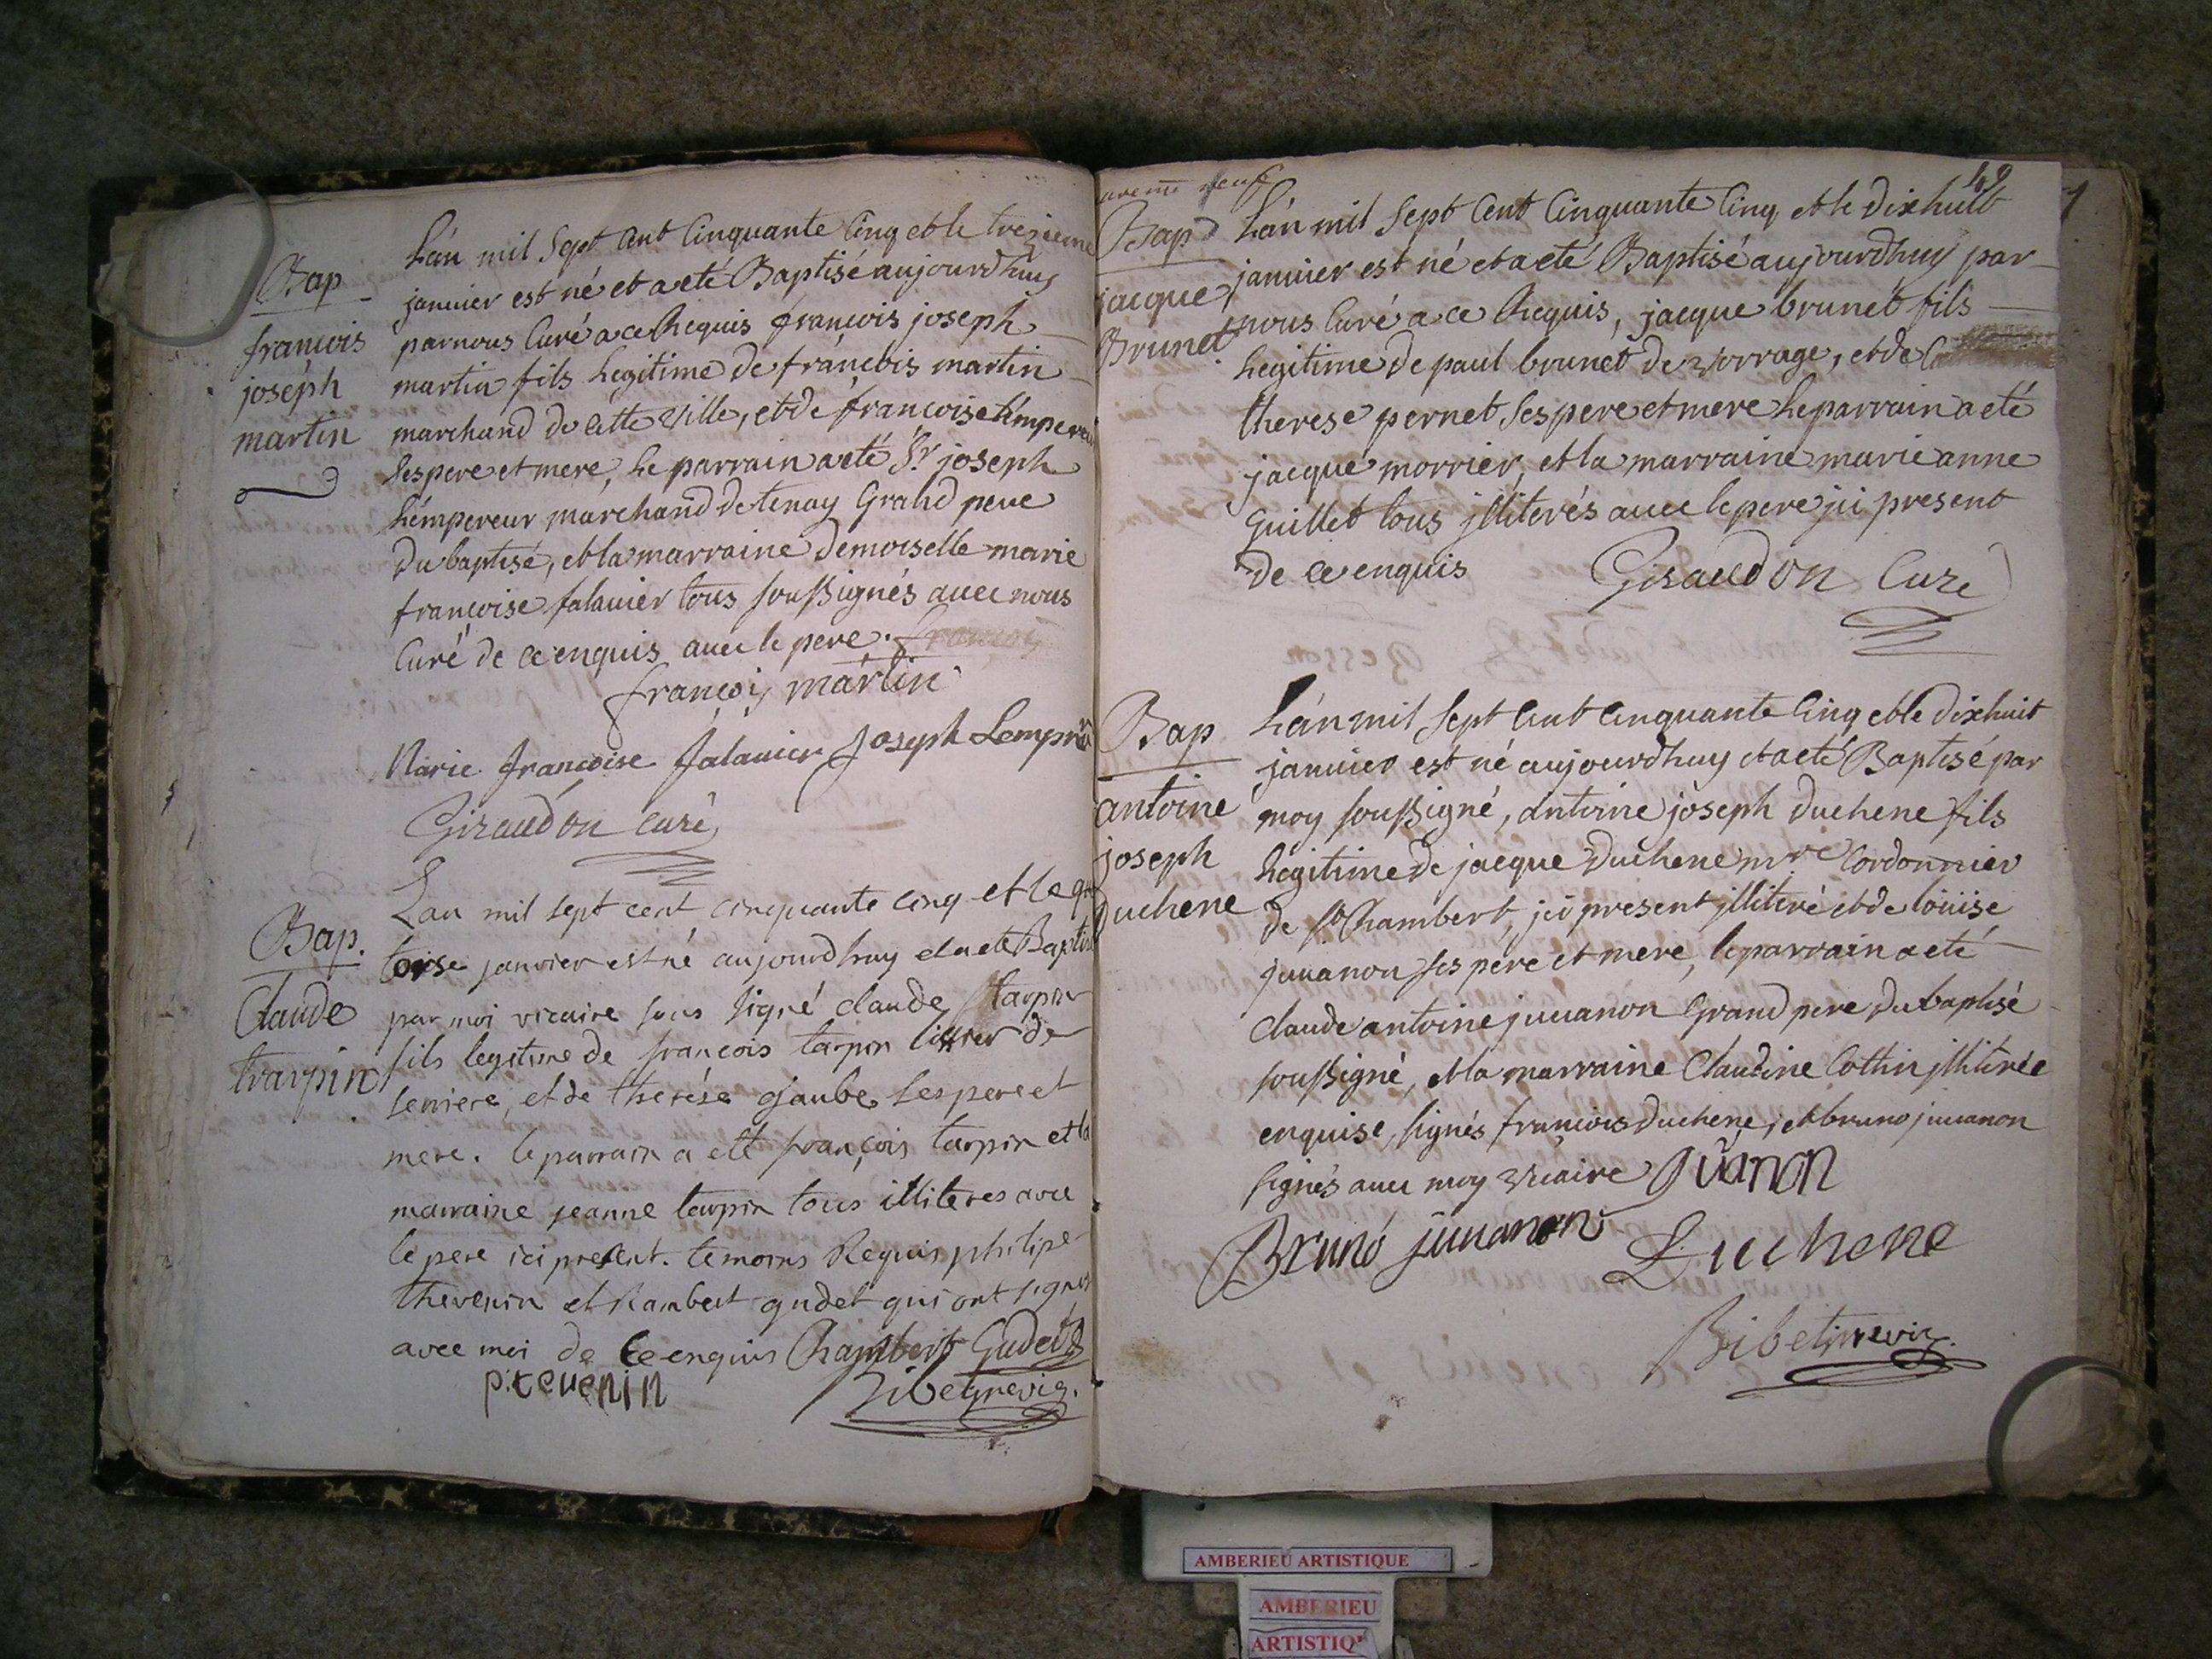 Bap
françois
joseph
martin
L'an mil Sept Cent Cinquante Cinq et le treizieme
januier est né et a eté Baptisé aujourdhuy
par nous Curé a ce Requis françois joseph
martin fils Legitime de françois martin
marchand de Cette Ville, et de françoise L'empereur
Ses pere et mere, Le parrain a eté Sr joseph
L'empereur marchand de tenay Grand pere
du baptisé, et la marraine demoiselle marie
françoise falauier tous soussignés auec nous
Curé de ce enquis auec le pere. françois
françois martin
Marie françoise falauier Joseph Lemprer
Giraudon curé
Bap.
Claude
tarpin
Lan mil sept cent cinquante cinq et le qua
torse janvier est né aujourdhuy et a eté Baptisé
par moi vicaire sous signé claude tarpin
fils legitime de françois tarpin tissier de
serriere, et de therése gaube ses pere et
mere. le parrain a eté françois tarpin et la
marraine jeanne tarpin tous illiteres avec
le pere ici present. temoins Requis philipe
thevenin et Rambert gudet qui ont signés
avec moi de ce enquis Chambert Gudet
p. tevenin
Ribet vic.
49
neuf
Bap
jacque
Brunet
L'an mil Sept Cent Cinquante Cinq et le dixhuit
januier est né et a eté Baptisé aujourdhuy par
nous Curé a ce Requis, jacque brunet fils
Legitime de paul brunet de Vorrage, et de
therese pernet Ses pere et mere Le parrain a eté
jacque morrier, et la marraine marie anne
Guillet tous jlliterés auec le pere jci present
de ce enquis
Giraudon Curé
Bap
antoine
joseph
duchene
L'an mil Sept Cent Cinquante Cinq et le dixhuit
januier est né aujourdhuy et a eté Baptisé par
moy soussigné, antoine joseph duchene fils
Legitime de jacque duchene mre Cordonnier
de St Chambert, jci present jlliteré et de loüise
juuanon ses pere et mere, le parrain a eté
Claude antoine juuanon Grand pere du baptisé
soussigné, et la marraine Claudine Cottin jlliterée
enquise, signés francois duchene, et bruno juuanon
signés auec moy Vicaire guanon
Bruno juuanon Duchene
Ribet vic.
AMBERIEU ARTISTIQUE
AMBERIEU
ARTISTIQ